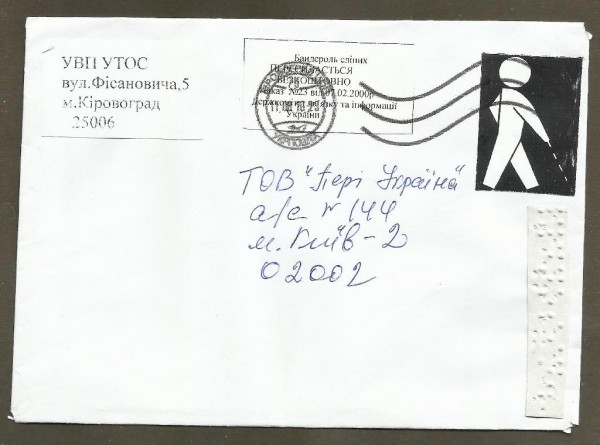 УВП УТОС
вул.Фісановича,5
м.Кіровоград
25006
Бандероль сліпих
ПЕРЕСИЛАЄТЬСЯ
БЕЗКОШТОВНО
Наказ №23 від 07.02.2000р
Держкому зв'язку та інформації
України
ТОВ "Пері Україна"
а/с № 144
м. Київ-2
02002